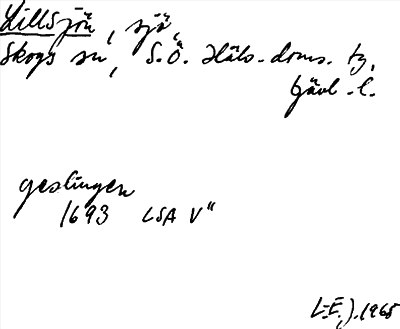 Lillsjön, sjö,
Skogs sn, S.Ö. Häls. doms. tg,
Gävl. l.
geslingen
1693 LSA V"
L-E.J. 1965